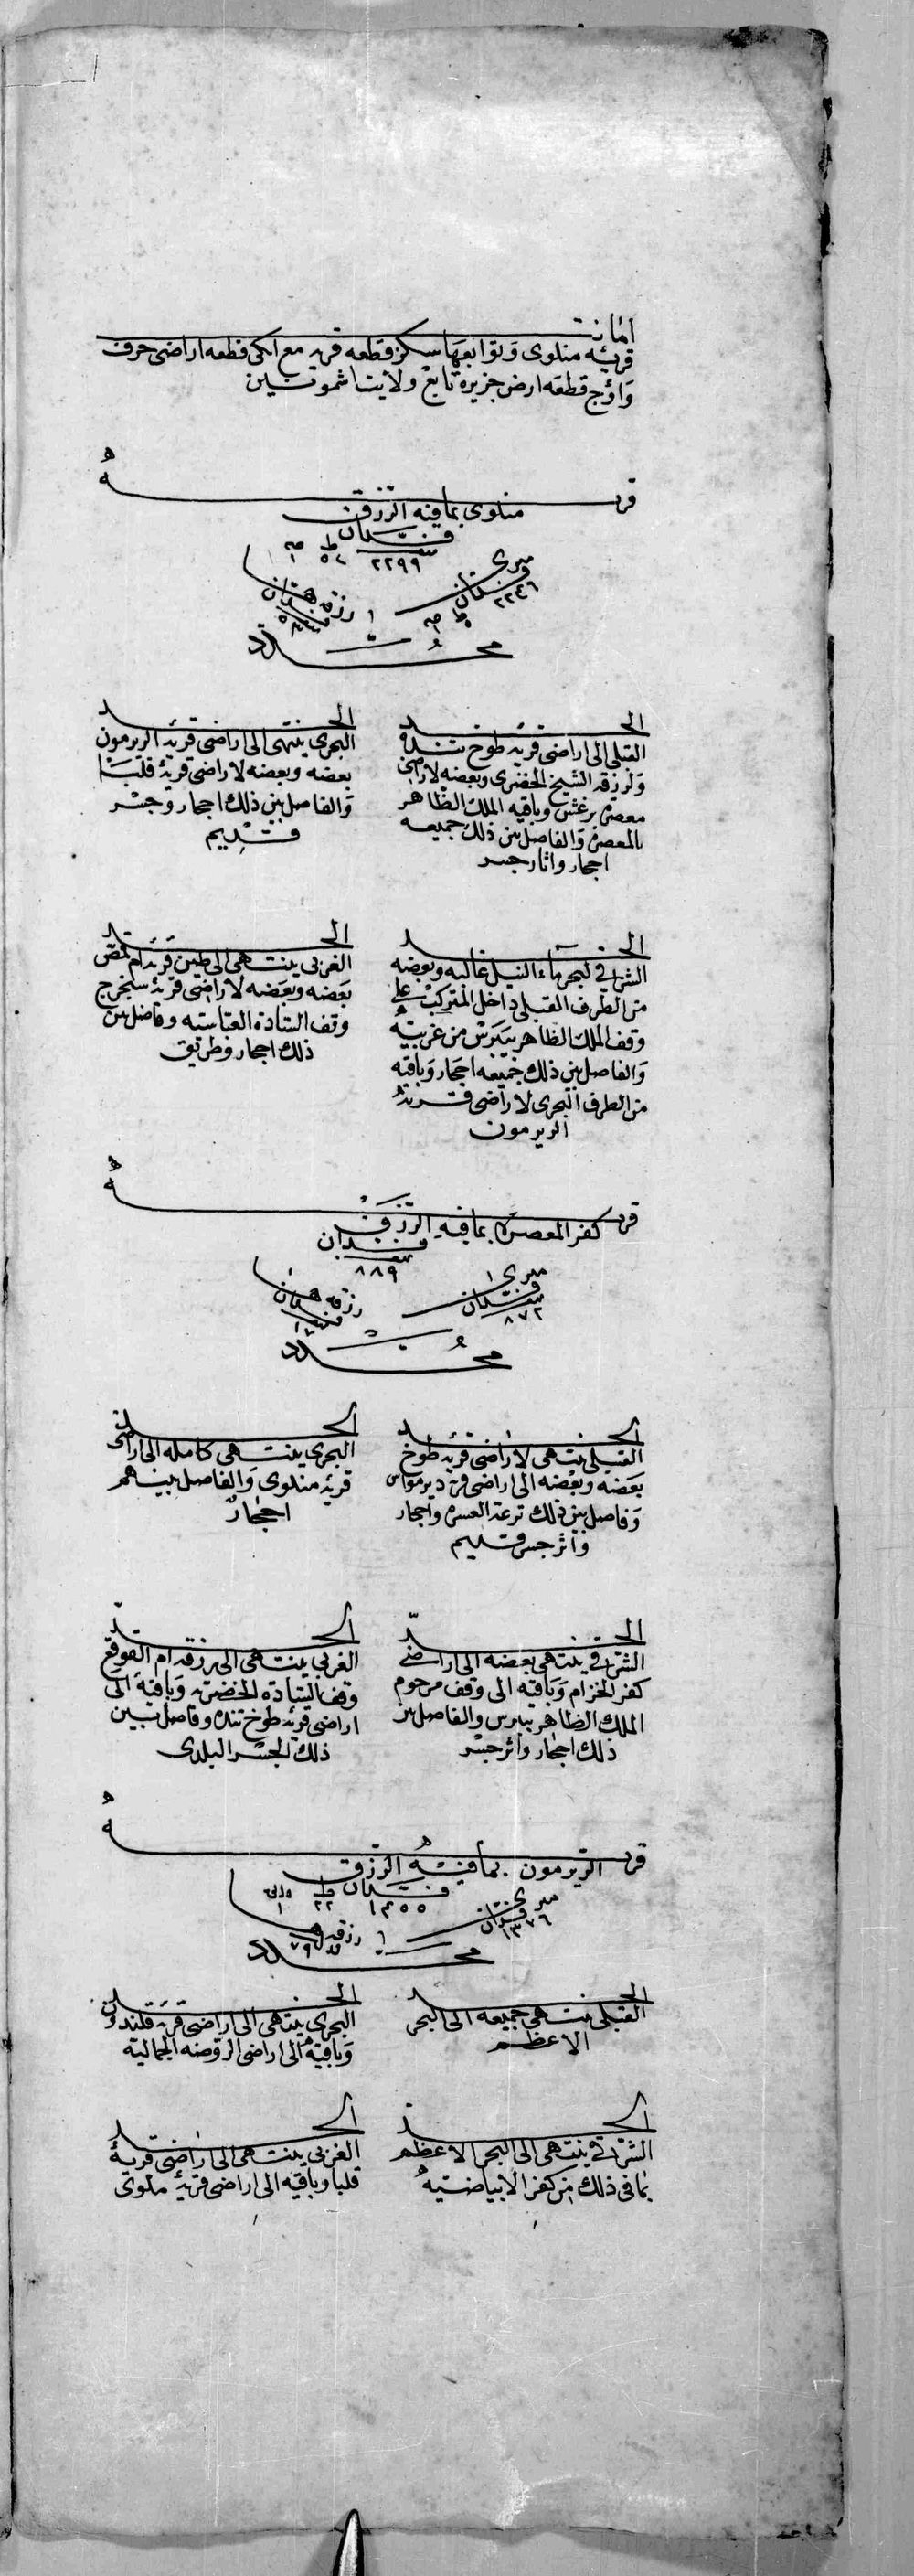 امانت
قريه منلوى وتوابعها سكز قطعه قريه مع ايكى قطعه اراضى حرف
واوج قطعه ارض جزيره تابع ولايت اشمونين
قريه
منلوى بما فيه الرزق
فدان
٢٢٩٩
ميرى
فدان
٢٢٤٦
رزقه
فدان
محدد
الحد
القبلى الى اراضى قريه طوخ تنده
ولرزقه الشيخ الخضرى وبعضه لاراضى
معصرة برغش وباقيه الملك الظاهر
بالمعصره والفاصل بين ذلك جميعه
احجار واثار جسر
الحد
البحرى ينتهى الى اراضى قريه الريرمون
بعضه وبعضه لاراضى قرية قلبا
والفاصل بين ذلك احجار وجسر
قديم
الحد
الشرقى لبحر ماء النيل غالبه وبعضه
من الطرف القبلى داخل المتركب على
وقف الملك الظاهر بيبرس من غربيه
والفاصل بين ذلك جميعه احجار وباقيه
من الطرف البحرى لاراضى قرية
الريرمون
الحد
الغربى ينتهى الى طين قريه ام قمص
بعضه وبعضه لاراضى قرية سنجرج
وقف السادة العباسيه وفاصل بين
ذلك احجار وطريق
قريه
كفر المعصرة بما فيه الرزق
فدان
٨٨٩
ميرى
فدان
٨٧٢
رزقه
فدان
محدد
الحد
القبلى ينتهى لاراضى قريه طوخ
بعضه وبعضه الى اراضى قريه ديرمواس
وفاصل بين ذلك ترعة العسره واحجار
واثر جسر قديم
الحد
البحرى ينتهى كامله الى اراضى
قريه منلوى والفاصل بينهم
احجار
الحد
الشرقى ينتهى بعضه الى اراضى
كفر الخزام وباقيه الى وقف مرحوم
الملك الظاهر بيبرس والفاصل بين
ذلك احجار واثر جسر
الحد
الغربى ينتهى الى رزقه ام القوقع
وقف السادة الخضريه وباقيه الى
اراضى قريه طوخ تنده وفاصل بين
ذلك الجسر البلدى
قريه
الريرمون بما فيه الرزق
فدان
١٤٥٥
ميرى
فدان
١٣٧٦
رزقه
٧٩
محدد
الحد
القبلى ينتهى جميعه الى البحر
الاعظم
الحد
البحرى ينتهى الى اراضى قريه قلندول
وباقيه الى اراضى الروضه الجماليه
الحد
الشرقى ينتهى الى البحر الاعظم
بما فى ذلك من كفر الابياضيه
الحد
الغربى ينتهى الى اراضى قرية
قلبا وباقيه الى اراضى قرية ملوى